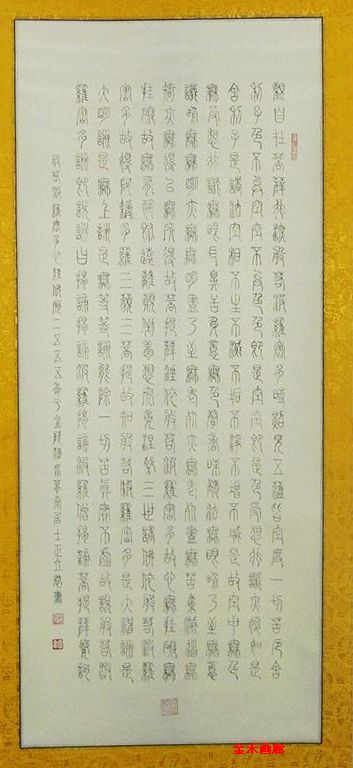 觀自在菩薩行深般若波羅蜜多時照見五蘊皆空度一切苦厄舍
利子色不異空空不異色色即是空空即是色受想行識亦復如是
舍利子是諸法空相不生不滅不垢不淨不增不減是故空中無色
無受想行識無眼耳鼻舌身意無色聲香味觸法無眼界乃至無意
識界無無明亦無無明盡乃至無老死亦無老死盡無苦集滅道無
智亦無得以無所得故菩提薩埵依般若波羅蜜多故心無罣礙無
罣礙故無有恐怖遠離顛倒夢想究竟涅槃三世諸佛依般若波羅
蜜多故得阿耨多羅三藐三菩提故知般若波羅蜜多是大神咒是
大明咒是無上咒是無等等咒能除一切苦真實不虛故說般若波
羅蜜多咒即說咒曰揭諦揭諦波羅揭諦波羅僧揭諦菩提薩婆訶
般若波羅蜜多心經佛曆二五五五年金陵居士正立書
金木画廊